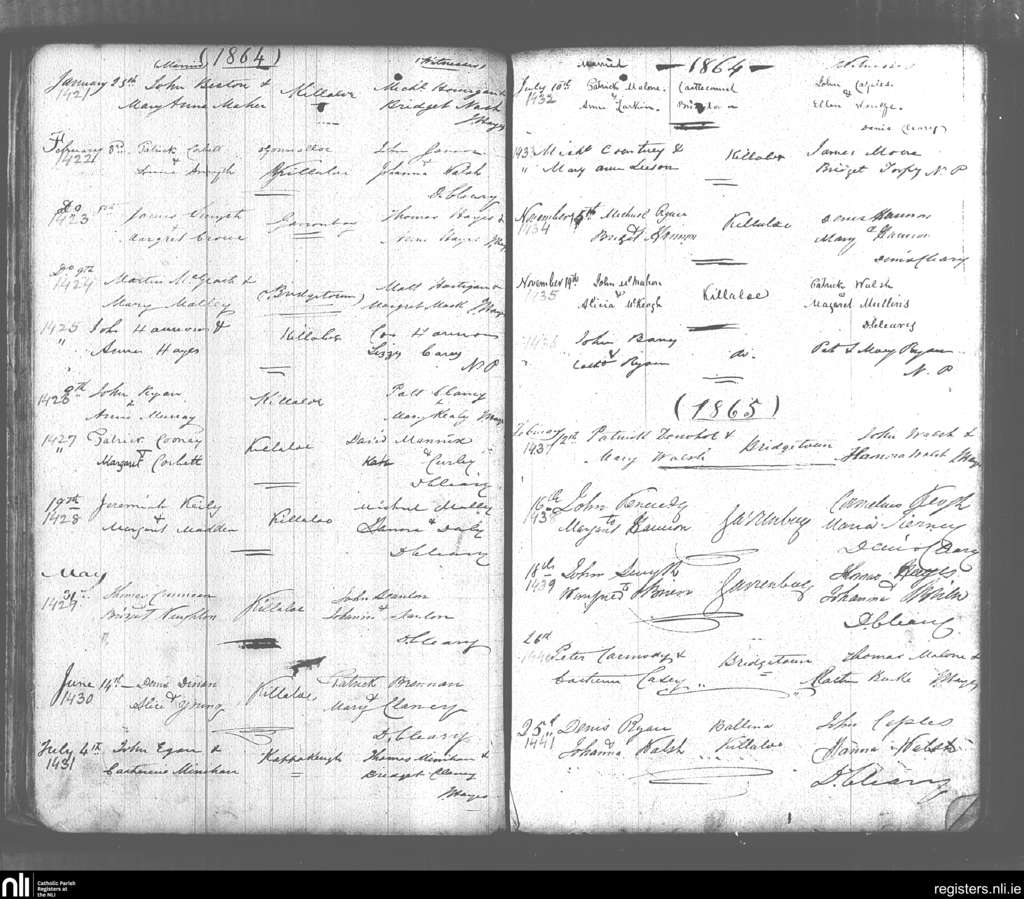 (1864)
Married Witnesses
January 25th John Beston & Killaloe Michl Bourgan &
1421 Mary Anne Maher Bridget Nash
J Hayes
February 3rd Patrick Cahill Ogonnelloe John
1422 & Smyth Killaloe Johanna Walsh
D. Cleary
Do 8th James Smyth Thomas Hayes &
1423 Margret Hayes
Do 9th Martin McGrath & (Bridgetown) Matt Hartigan &
1424 Mary Malley Margret Mack
1425 John Hannon & Killaloe Con Hannon
" Anne Hayes Lizzy Carey
N. P
9th John Ryan Killaloe Patt Clancy
1426 & Annie Murray & Mary Healy
1427 Patrick Cooney Killaloe David Mannix
" Margaret Corbett Kate & Curley
D. Cleary
19th Jeremiah Keily Killaloe Michael Malley
1428 & Margaret Madden & Daly
D. Cleary
May
31st Thomas Killaloe John Scanlon
1429 Bridget Naughton Johanna Scanlon
D. Cleary
June 14th Denis Dinan Killaloe Patrick Brennan
1430 Alice & Young Mary & Clancy
D. Cleary
July 4th John Egan & Kappakeugh Thomas Minihan &
1431 Catherine Minihan Bridget Clancy
J Hayes
Married 1864 Witnesses
July 10th Patrick Malone Castleconnel John
1432 & Anne Larkin Ellen
Denis Cleary
1433 Michl Courtney & Killaloe James Moore
" Mary Ann Leeson Bridget Torpy N P
November 15th Michael Ryan Killaloe Denis Hannon
1434 Bridget & Hannon Mary & Hannon
Denis Cleary
November 19th John McMahon Killaloe Patrick Walsh
1435 & Alicia McKeogh & Margaret Mullins
D. Cleary
1436 John Barry Do. Pat & Mary Ryan
Cathe & Ryan N. P
(1865)
February 12th Patrick Donohoe & Bridgetown John Walsh &
1437 Mary Walsh Hanora Walsh J Hayes
16th John Kennedy Cornelius Keogh
1438 Margaret & Hannon Maria Kerney
Denis Cleary
18th John Smyth Garrenboy Thomas Hayes
1439 Winifred & Brien Johanna
D. Cleary
26th
1440 Peter Carmody & Bridgetown Thomas Malone &
Catherine Casey Martin Burke J Hayes
25th Denis Ryan Ballina John Coples
1441 Johanna & Walsh Killaloe Hanna Walsh
D. Cleary
nli Catholic Parish
Registers at
the NLI
registers.nli.ie